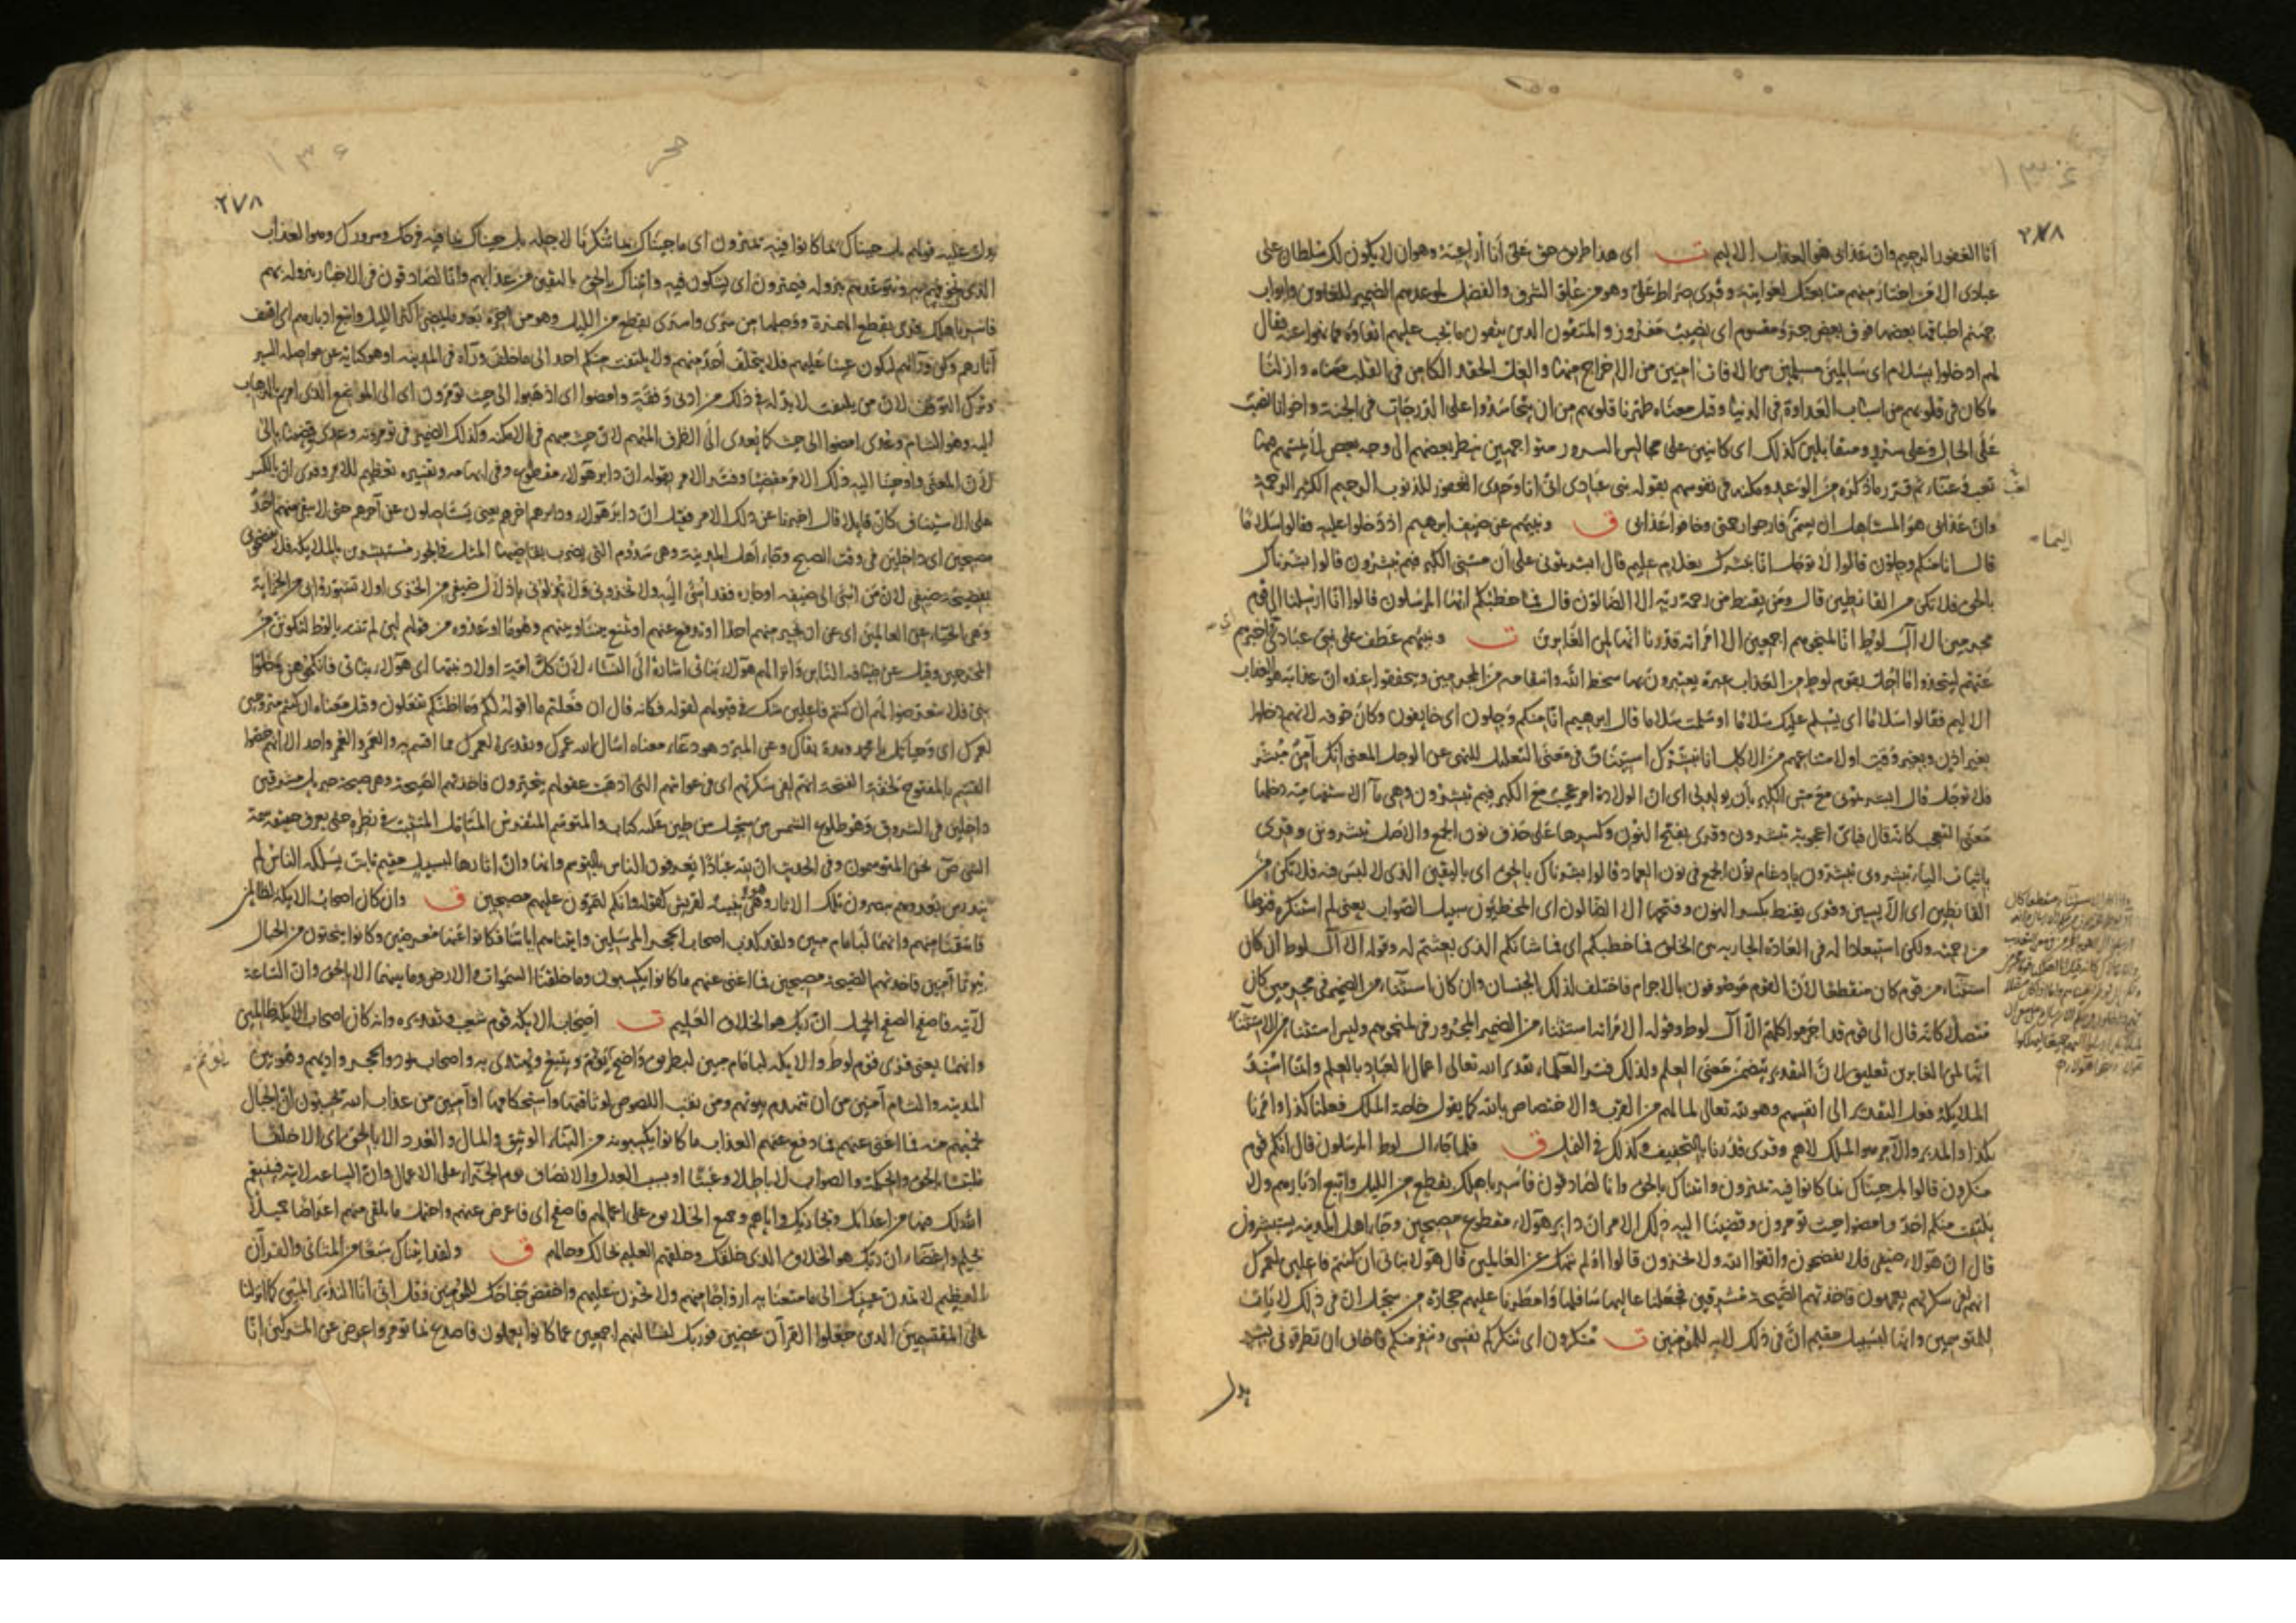 انا الغفور الرحيم وان عذابى هو العذاب الاليم ت اى هذا طريق حق على أنا أراعيه وهو ان لا يكون لك سلطان على
عبادى الا من اختار منهم متابعتك لغوايته وقرى صراط على وهو من علو الشرف والفضل لموعدهم الضمير للغاوين وابواب
جهنم اطباقها بعضها فوق بعض جزء مقسوم اى نصيب مفروز والمتقون الذين يتقون ما يجب عليهم اتقاؤه مما نهوا عنه يقال
لهم ادخلوا بسلام اى سالمين مسلمين من الافات امنين من الاخراج منها والغل الحقد الكامن فى القلب معناه وازلنا
ما كان فى قلوبهم من اسباب العداوة فى الدنيا وقيل معناه طهرنا قلوبهم من ان يتحاسدوا على الدرجات فى الجنة واخوانا نصب
على الحال وعلى سرر ومتقابلين كذلك اى كائنين على مجالس السرور متواجهين ينظر بعضهم الى وجه بعض لا يمسهم فيها
تعب وعناء ثم قرر ما ذكره من الوعد ومكنه فى نفوسهم بقوله نبى عبادى انى انا وحدى الغفور للذنوب الرحيم الكثير الرحمة
وان عذابى هو المستاهل ان يسمى فارجوا رحمتى وخافوا عذابى ق ونبئهم عن ضيف ابرهيم اذ دخلوا عليه فقالوا سلاما
قال انا منكم وجلون قالوا لا توجل انا نبشرك بغلام عليم قال ابشرتمونى على أن مسنى الكبر فبم تبشرون قالوا بشرناك
بالحق فلا تكن من القانطين قال ومن يقنط من رحمة ربه الا الضالون قال فما خطبكم ايها المرسلون قالوا انا ارسلنا الى قوم
مجرمين الا آل لوط انا لمنجوهم اجمعين الا امراته قدرنا انها لمن الغابرين ت ونبئهم عطف على نبئ عبادى اى اخبرهم
عنهم ليتخذوا ما أحل بقوم لوط من العذاب عبرة يعتبرون بها سخط الله وانتقامه من المجرمين ويتحققوا عنده ان عذابه هو العذاب
الاليم فقالوا سلاما اى نسلم عليك سلاما او سلمت سلاما قال ابرهيم انا منكم وجلون اى خايفون وكان خوفه لانهم دخلوا
بغير اذن وبغير وقت او لامتناعهم من الاكل انا نبشرك استيناف فى معنى التعليل للنهى عن الوجل المعنى انك آمن مبشر
فلا توجل قال ابشرتمونى مع مس الكبر بأن يولد لى اى ان الولادة امر عجيب مع الكبر فبم تبشرون وهى ما الاستفهامية دخلها
معنى التعجب كانه قال فباى اعجوبة تبشرون وقرى بفتح النون وكسرها على حذف نون الجمع والاصل تبشرونن وقرى
باثبات الياء تبشرونى وتبشرون بادغام نون الجمع فى نون العماد قالوا بشرناك بالحق اى باليقين الذى لا لبس فيه فلا تكن من
القانطين اى الآيسين وقرى يقنط بكسر النون وفتحها الا الضالون اى المخطئون سبيل الصواب يعنى لم استنكر قنوطا
من رحمته ولكن استبعادا له فى العادة الجارية بين الخلق فما خطبكم اى فما شانكم الذى بعثتم له وقوله الا آل لوط ان كان
استثناء من قوم كان منقطعا لأن القوم موصوفون بالاجرام فاختلف لذلك الجنسان وان كان استثناء من الضمير فى مجرمين كان
متصلا كانه قال الى قوم قد اجرموا كلهم الا آل لوط وقوله الا امراته استثناء من الضمير المجرور فى لمنجوهم وليس استثناء من الاستثناء
انها لمن الغابرين تعليق لان التقدير يتضمن معنى العلم ولذلك فسر العلماء تقدير الله تعالى اعمال العباد بالعلم وانما اسند
الملايكة فعل التقدير الى انفسهم وهو لله تعالى لما لهم من القرب والاختصاص بالله كما يقول خاصة الملك فعلنا كذا وامرنا
بكذا والمدبر والآمر هو الملك لا هم وقرى قدرنا بالتخفيف وكذلك فى النمل ق فلما جاء ال لوط المرسلون قال انكم قوم
منكرون قالوا بل جئناك بما كانوا فيه يمترون واتيناك بالحق وانا لصادقون فاسر باهلك بقطع من الليل واتبع ادبارهم ولا
يلتفت منكم احد وامضوا حيث تؤمرون وقضينا اليه ذلك الامر ان دابر هؤلاء مقطوع مصبحين وجاء اهل المدينة يستبشرون
قال ان هؤلاء ضيفى فلا تفضحون واتقوا الله ولا تخزون قالوا اولم ننهك عن العالمين قال هؤلاء بناتى ان كنتم فاعلين لعمرك
انهم لفى سكرتهم يعمهون فاخذتهم الصيحة مشرقين فجعلنا عاليها سافلها وامطرنا عليهم حجارة من سجيل ان فى ذلك لايات
للمتوسمين وانها لبسبيل مقيم ان فى ذلك لاية للمؤمنين ت منكرون اى تنكركم نفسى وتنفر منكم فاخاف ان تطرقونى بشر
يدل
٢٧٨
حجر
٢٧٨
يدل عليه قولهم بل جيناك بما كانوا فيه يمترون اى ما جيناك بما تنكرنا لاجله بل جيناك بما فيه فرحك وسرورك وهو العذاب
الذى تخوفهم به وتتوعدهم بنزوله فيمترون اى يشكون فيه واتيناك بالحق باليقين من عذابهم وانا لصادقون فى الاخبار بنزوله بهم
فاسر باهلك قرى بقطع الهمزة ووصلها من سرى واسرى بقطع من الليل وهو من اخره بعد ما يمضى اكثر الليل واتبع ادبارهم اى اقتف
آثارهم وكن ورائهم لتكون عينا عليهم فلا يتخلف أحد منهم ولا يلتفت منكم احد الى ما خلف وراه فى المدينه او هو كناية عن مواصلة السير
وترك التوقف لان من يلتفت لا بد له فى ذلك من ادنى وقفة وامضوا اى اذهبوا الى حيث تؤمرون اى الى الموضع الذى امرتم بالذهاب
اليه وهو الشام وعدى امضوا الى حيث كما يعدى الى الظرف المبهم لان حيث مبهم فى الامكنه وكذلك الضمير فى تؤمرونه وعدى قضينا بالى
لأن المعنى واوحينا اليه ذلك الامر مقضيا وفسر الامر بقوله ان دابر هؤلاء مقطوع وفى ابهامه وتفسيره تعظيم للامر وقرى ان بالكسر
على الاستيناف كان قايلا قال اخبرنا عن ذلك الامر فقيل ان دابر هؤلاء ودابرهم اخرهم يعنى يستاصلون عن آخرهم حتى لا يبقى منهم احد
مصبحين اى داخلين فى وقت الصبح وجاء أهل المدينة وهى سدوم التى يضرب بقاضيها المثل فى الجور مستبشرين بالملايكة فلا تفضحون
بفضيحة ضيفى لان من اسئ الى ضيفه او جاره فقد اسئ اليه ولا تخزونى ولا تذلونى باذلال ضيفى من الخزى او لا تشوروا بى من الخزاية
وهى الحياء عن العالمين اى عن ان تجير منهم احدا او تدفع عنهم او تمنع بيننا وبينهم وهو ما اوعدوه من قولهم لئن لم تنته يا لوط لتكونن من
المخرجين وقيل عن ضيافة الناس وانزالهم هؤلاء بناتى اشارة الى النساء لأن كل امة اولاد نبيها اى هؤلاء بناتى فانكحوهن وخلوا
بنى فلا تتعرضوا لهم ان كنتم فاعلين شك فى قبولهم لقوله فكانه قال ان فعلتم ما اقوله لكم وما اظنكم تفعلون وقيل معناه ان كنتم متزوجين
لعمرك اى وحياتك يا محمد ومدة بقاك وعن المبرد هو دعاء معناه اسال الله عمرك وتقديره لعمرك مما اقسم به والعمر والعمر واحد الا انهم خصوا
القسم بالمفتوح لخفة الفتحة انهم لفى سكرتهم اى فى غوايتهم التى اذهبت عقولهم يتحيرون فاخذتهم الصيحة وهى صيحة جبريل مشرقين
داخلين فى الشروق وهو طلوع الشمس من سجيل من طين عليه كتاب والمتوسم المتفرس المتامل المتثبت فى نظره حتى يعرف حقيقة سمة
الشئ نحن المتوسمون وفى الحديث ان لله عبادا يعرفون الناس بالتوسم وانها وان اثارها لبسبيل مقيم ثابت يسلكه الناس لم
يندرس بعد وهم يبصرون تلك الاثار وهى تنبيه لقريش كقوله وانكم لتمرون عليهم مصبحين ق وان كان اصحاب الايكة لظالمين
فانتقمنا منهم وانهما لبامام مبين ولقد كذب اصحاب الحجر المرسلين واتيناهم اياتنا فكانوا عنها معرضين وكانوا ينحتون من الجبال
بيوتا آمنين فاخذتهم الصيحة مصبحين فما اغنى عنهم ما كانوا يكسبون وما خلقنا السموات والارض وما بينهما الا بالحق وان الساعة
لآتية فاصفح الصفح الجميل ان ربك هو الخلاق العليم ت أصحاب الايكة قوم شعيب وتقديره وانه كان اصحاب الايكة ظالمين
وانهما يعنى قرى قوم لوط والايكة لبامام مبين لبطريق واضح يؤتم ويتبع ويهتدى به واصحاب ثمود والحجر واديهم وهو بين
المدينه والشام آمنين من ان تنهدم بيوتهم ومن نقب اللصوص لوثاقتها واستحكامها او آمنين من عذاب الله تحسبون ان الجبال
تحميهم منه فما اغنى عنهم فما دفع عنهم العذاب ما كانوا يكسبونه من البناء الوثيق والمال والعدد الا بالحق اى الا خلقا
ملتبسا بالحق والحكمة والصواب لا باطلا وعبثا او بسبب العدل والانصاف يوم الجزاء على الاعمال وان الساعه لاتية فينتقم
الله لك فيها من اعدائك ويجازيك واياهم وجميع الخلايق على اعمالهم فاصفح اى فاعرض عنهم واحتمل ما تلقى منهم اعراضا جميلا
بحلم واغضاء ان ربك هو الخلاق الذى خلقك وخلقهم العليم بحالك وحالهم ق ولقد اتيناك سبعا من المثانى والقرآن
العظيم لا تمدن عينيك الى ما متعنا به ازواجا منهم ولا تحزن عليهم واخفض جناحك للمؤمنين وقل انى أنا النذير المبين كما انزلنا
على المقتسمين الذين جعلوا القرآن عضين فوربك لنسالنهم اجمعين عما كانوا يعملون فاصدع بما تؤمر واعرض عن المشركين إنا